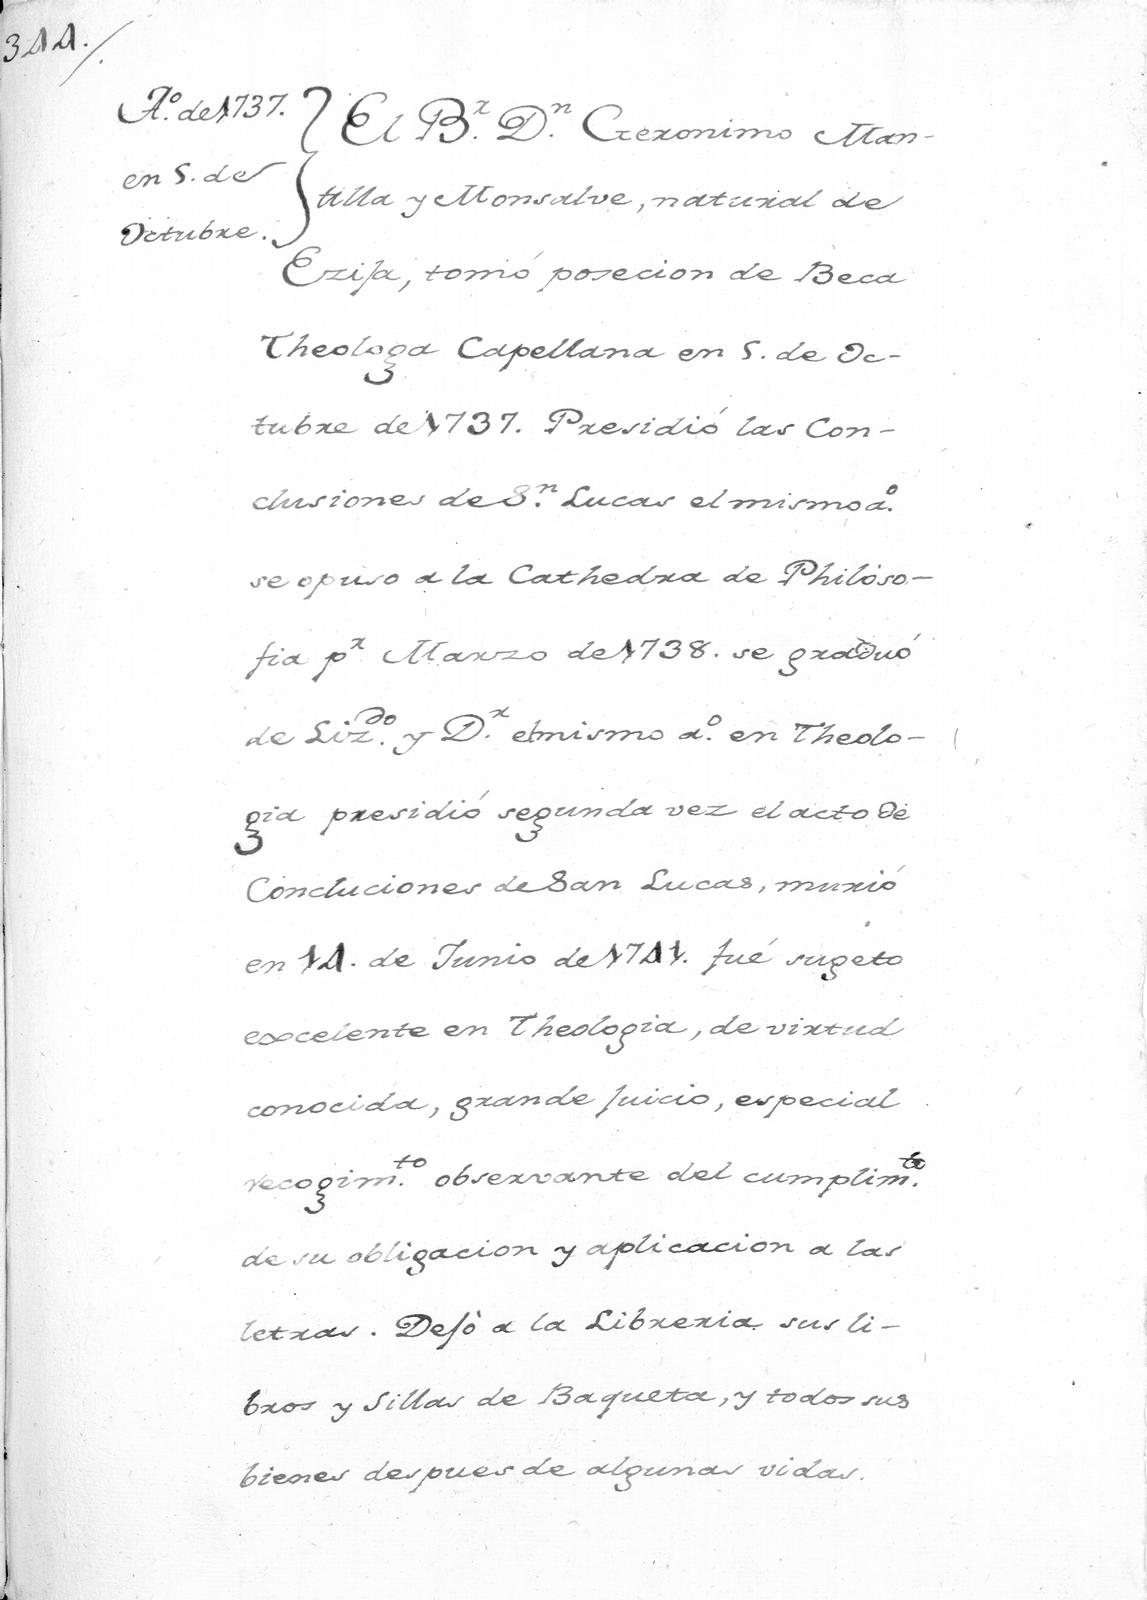 344./.
A.º de 1737.
en 5. de
Octubre.
El B.r D.n Geronimo Man-
tilla y Monsalve, natural de
Ezija, tomó posecion de Beca
Theologa Capellana en 5. de Oc-
tubre de 1737. Presidió las Con-
clusiones de S.n Lucas el mismo a.º
se opuso a la Cathedra de Philoso-
fia p.r Marzo de 1738. se graduó
de Liz.do y D.r el mismo a.º en Theolo-
gia presidió segunda vez el acto de
Concluciones de San Lucas, murió
en 14. de Junio de 1741. fué sugeto
excelente en Theologia, de virtud
conocida, grande juicio, especial
recogim.to observante del cumplim.to
de su obligacion y aplicacion a las
letras. Dejò a la Libreria sus li-
bros y Sillas de Baqueta, y todos sus
bienes despues de algunas vidas.